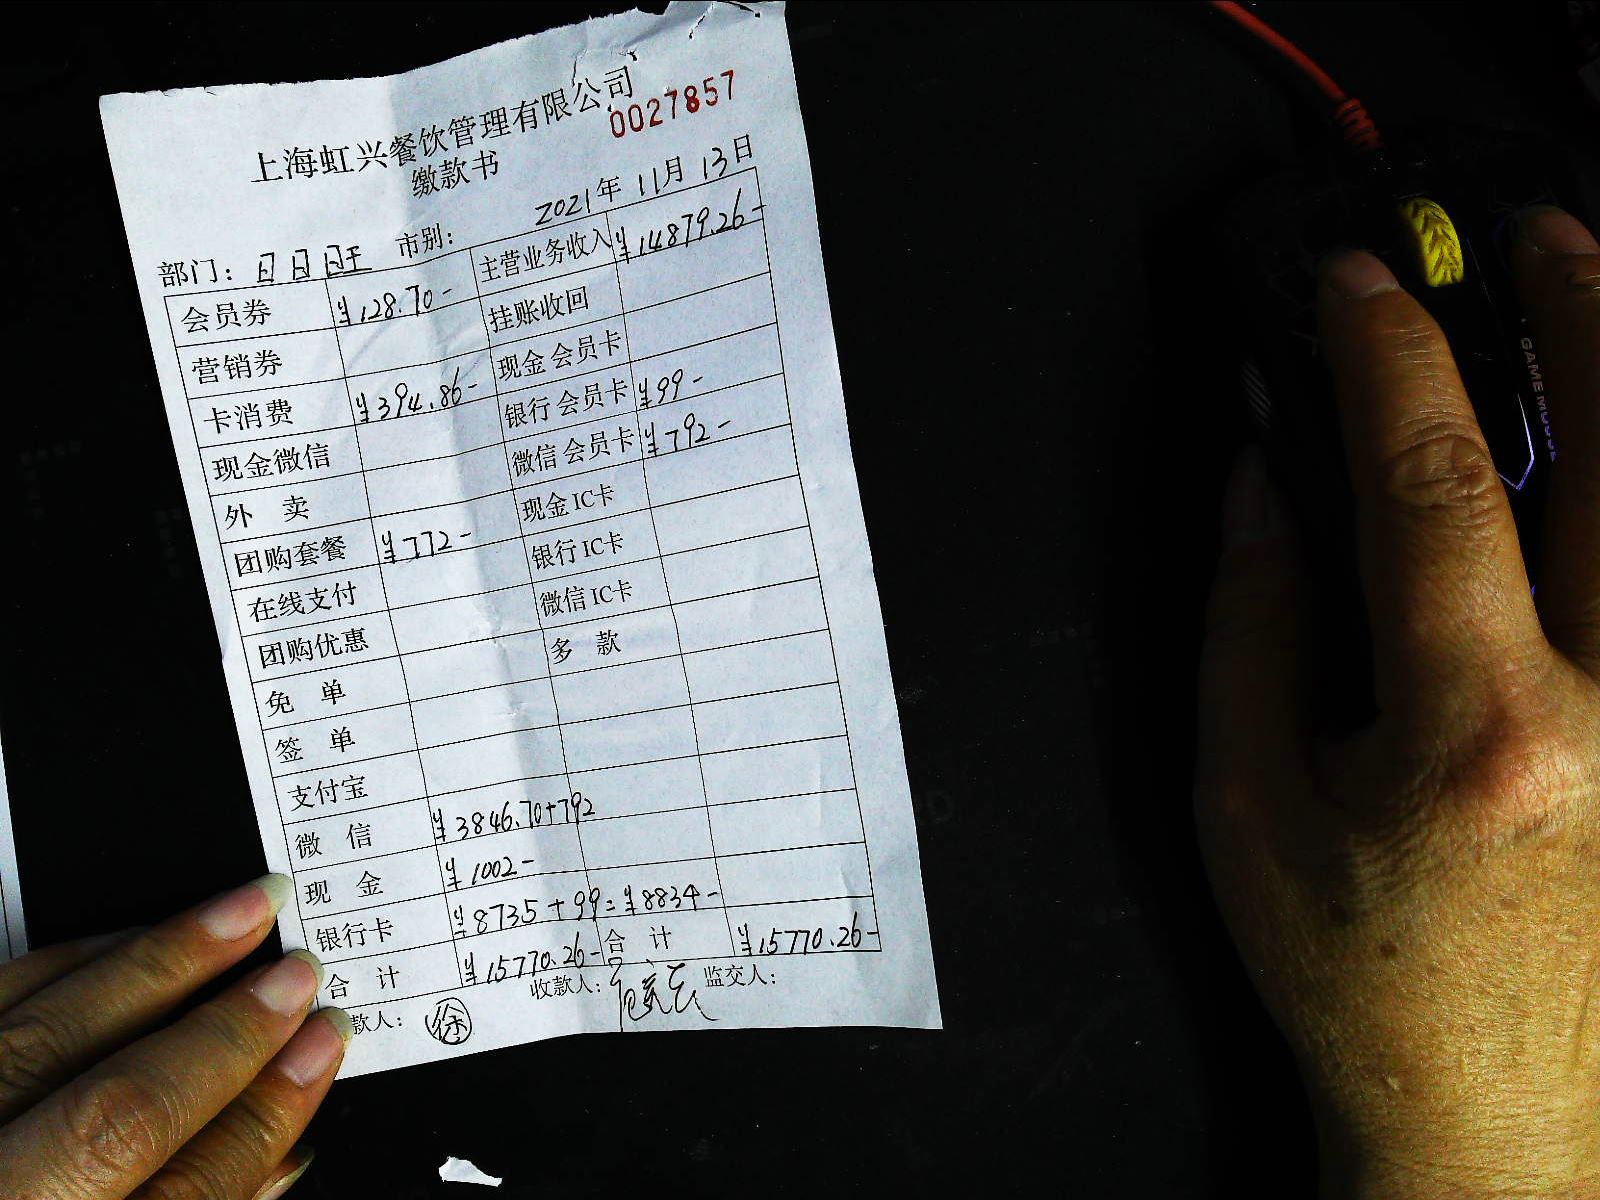 上海虹兴餐饮管理有限公司
0027857
缴款书
2021年 11月 13日
部门: 日日旺 市别:
会员券 ¥128.70- 主营业务收入 ¥14879.26-
营销券 挂账收回
卡消费 ¥394.86- 现金会员卡
现金微信 银行会员卡 ¥99-
外 卖 微信会员卡 ¥792-
团购套餐 ¥772- 现金IC卡
在线支付 银行IC卡
团购优惠 微信IC卡
免 单 多 款
签 单
支付宝
微 信 ¥3846.70+792
现 金 ¥1002-
银行卡 ¥8735+99=¥8834-
合 计 ¥15770.26- 合 计 ¥15770.26-
款人: 徐 收款人: 监交人:
GAMEMOUSE